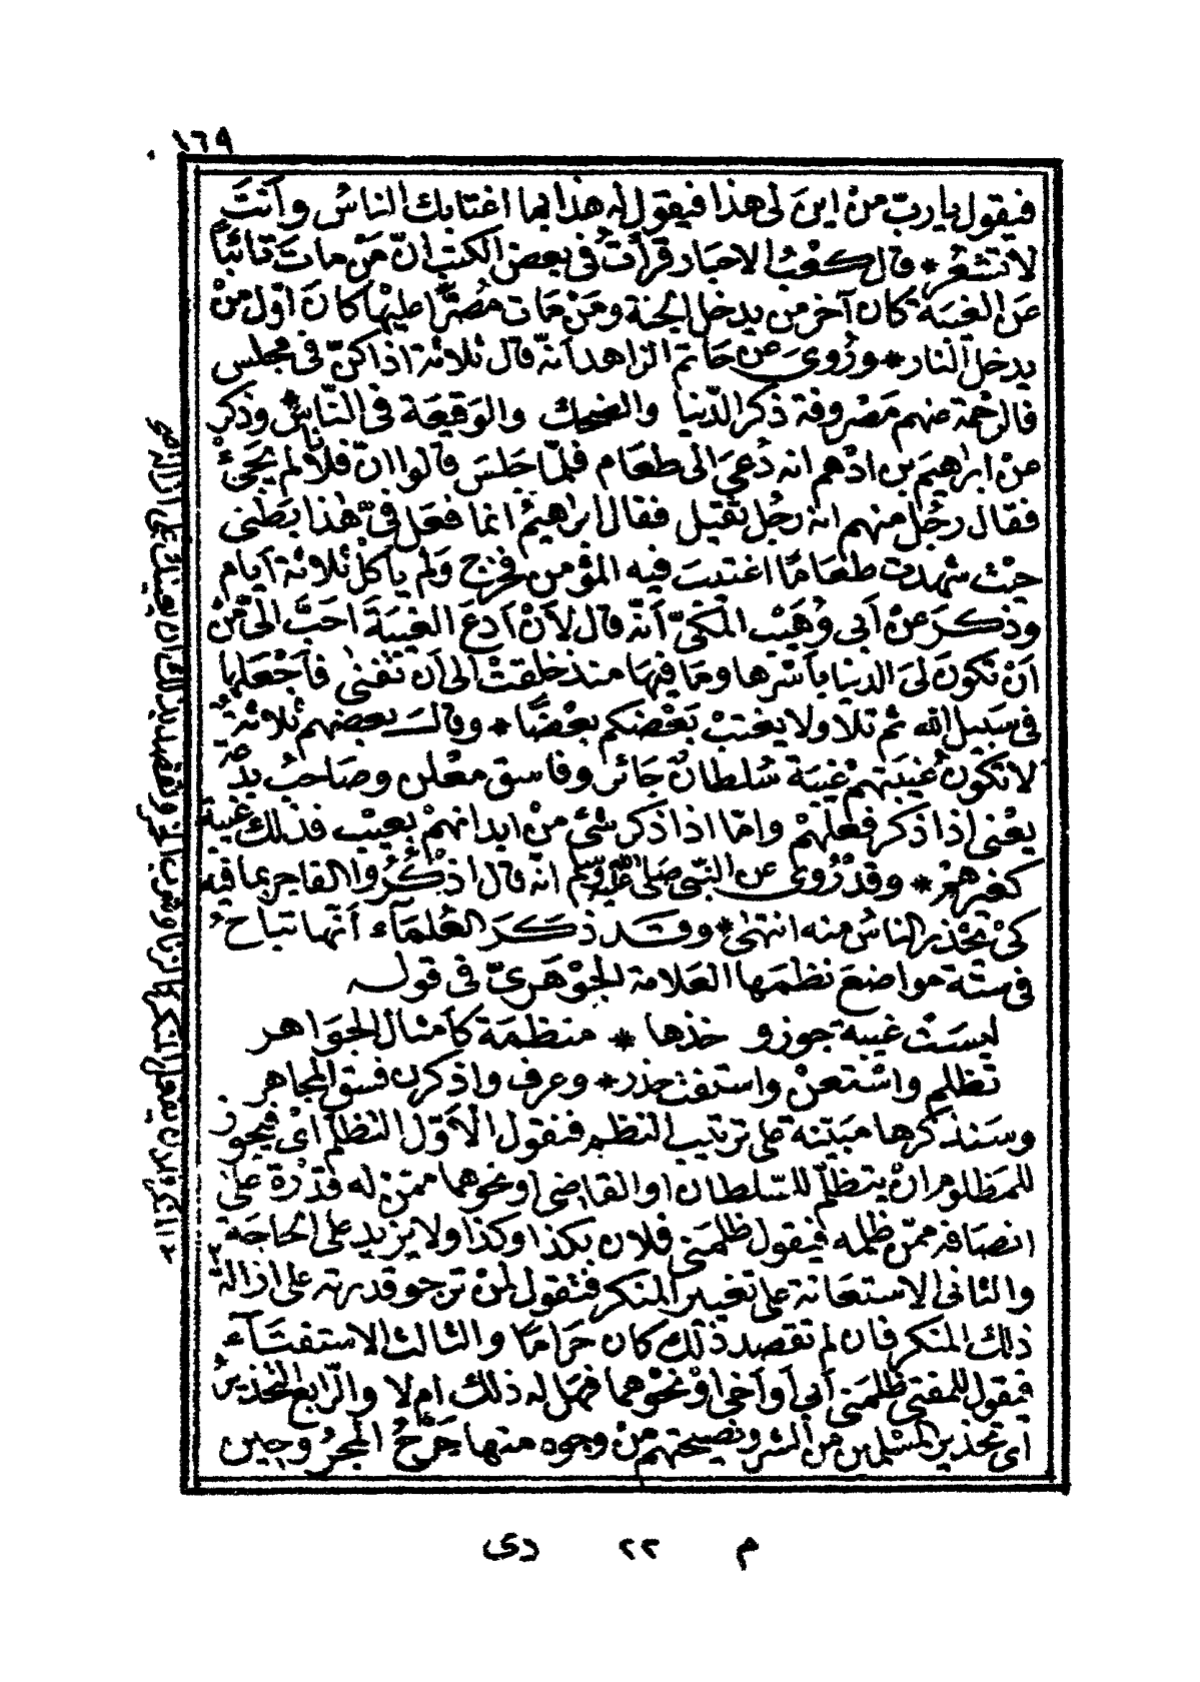 ١٦٩
فيقول يا ربّ من اين لى هذا فيقول له هذا بما اغتابك الناسُ وأنتَ
لا تشعُر * قال كعْبُ الاحبار قرأتُ فى بعض الكتب انّ مَنْ ماتَ تائبًا
عَن الغيبَة كان آخر من يدخل الجنة ومَنْ مَات مُصرًّا عليْها كانَ اوّل منْ
يدخل النار * ورُوىَ عن حَاتم الزاهد أنّه قال ثلاثة اذا كنّ فى مجْلس
فالرحْمة عنهم مَصْروفة ذكر الدّنيا والضحك والوَقيعَة فى النّاس * وذكر
عنْ ابراهيمَ بن ادْهم انه دُعىَ الى طعَام فلمّا جَلسَ قالوا انّ فلانًا لم يجَئْ
فقال رجُل منهم انه رجُل ثقيل فقال ابراهيمُ انما فعَل فىّ هٰذا بَطنى
حيْث شهدت طعَامًا اغتبتَ فيه المؤمن فخرج وَلم يأكلْ ثلاثة أيام
وذكرَ عَنْ أبى وُهَيْب المكىّ أنّه قال لأنْ أدعَ الغيبَةَ احَبّ الىّ منْ
أنْ تكونَ لىَ الدنيا بأسْرها ومَا فيهَا منذ خلقتْ الى أن تفنىٰ فأجْعَلها
فى سَبيل الله ثم تلا ولا يغتبْ بَعْضكم بعْضًا * وقالَ بعضهم ثلاثةٌ
لا تكونُ غيبَتهمْ غيبَة سُلطانٌ جَائر وفاسق معْلن وصَاحبُ بدْعة
يعْنى اذا ذكر فعلهمْ وامّا اذا ذكر شئ منْ ابدانهمْ بعيْب فذلك غيبة
كغيرهمْ * وقدْ رُوى عن النبىّ صَلى الله عليه وسلم انّه قال اذْكرُوا الفاجر بما فيه
كىْ يحْذره الناسُ منه انتهىٰ * وقد ذكرَ العُلمَآء أنّها تباحُ
فى ستّة مواضعَ نظمَها العَلامة الجوْهَرىّ فى قوله
ليسَتْ غيبة جوز وخذها * منظمَة كأمثال الجوَاهر
تظلم واسْتعنْ واستفت حذر * وعرف واذكرن فسق المجاهر
وسَنذكرها مبَيّنة على ترتيب النظم فنقول الأوّل التظلم أىْ يجوز
للمَظلوم انْ يتظلّم للسّلطان او القاضى او نحوهما ممّن له قدْرة على
انصَافه ممّن ظلمه فيقول ظلمَنى فلان بكذا وكذا ولا يزيد على الحاجَة
والثانى الاستعَانة على تغيير المنكر فتقول لمنْ ترجو قدرته على ازالة
ذلك المنكر فان لم تقصد ذلك كان حَرامًا والثالث الاستفتآء
فيقول للمفتى ظلمَنى أبى أو أخى أوْ نحْوهما فهَل له ذلك ام لا والرّابع التحْذيرُ
أى تحْذير المسْلمين من الشر ونصيحتهم منْ وجوه منها جَرْحُ المجْروحِين
م ٢٢ دى